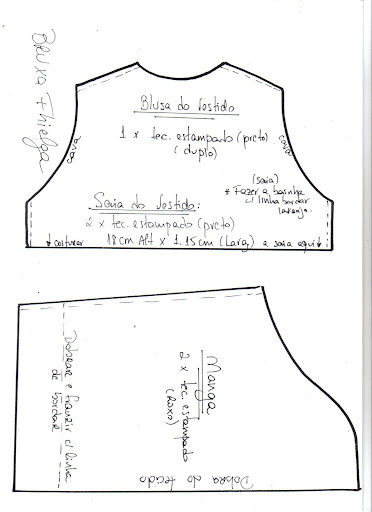 Bruxa Thielga
cava
Blusa do Vestido
1 x tec. estampado (preto)
(duplo)
cava
(saia)
* Fazer a bainha
c/ linha bordar
laranja.
Saia do Vestido:
2 x tec. estampado (preto)
18cm Alt x 1.15cm (Larg)
↓ costurar a saia aqui ↓
Manga
2 x tec. estampado
(Roxo)
Dobrar e franzir c/ linha
de bordar
Dobra do tecido